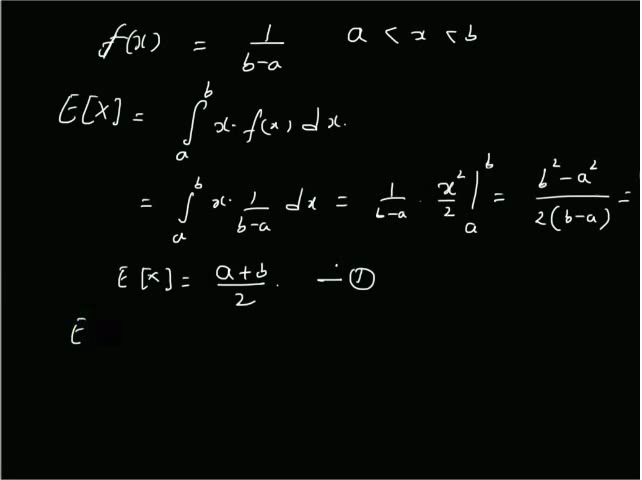 f(x) = 1/(b-a) a < x < b
E[X] = ∫_a^b x. f(x) dx.
= ∫_a^b x. 1/(b-a) dx = 1/(b-a) . x²/2 |_a^b = (b²-a²)/(2(b-a)) =
E[x] = (a+b)/2 . — ①
E